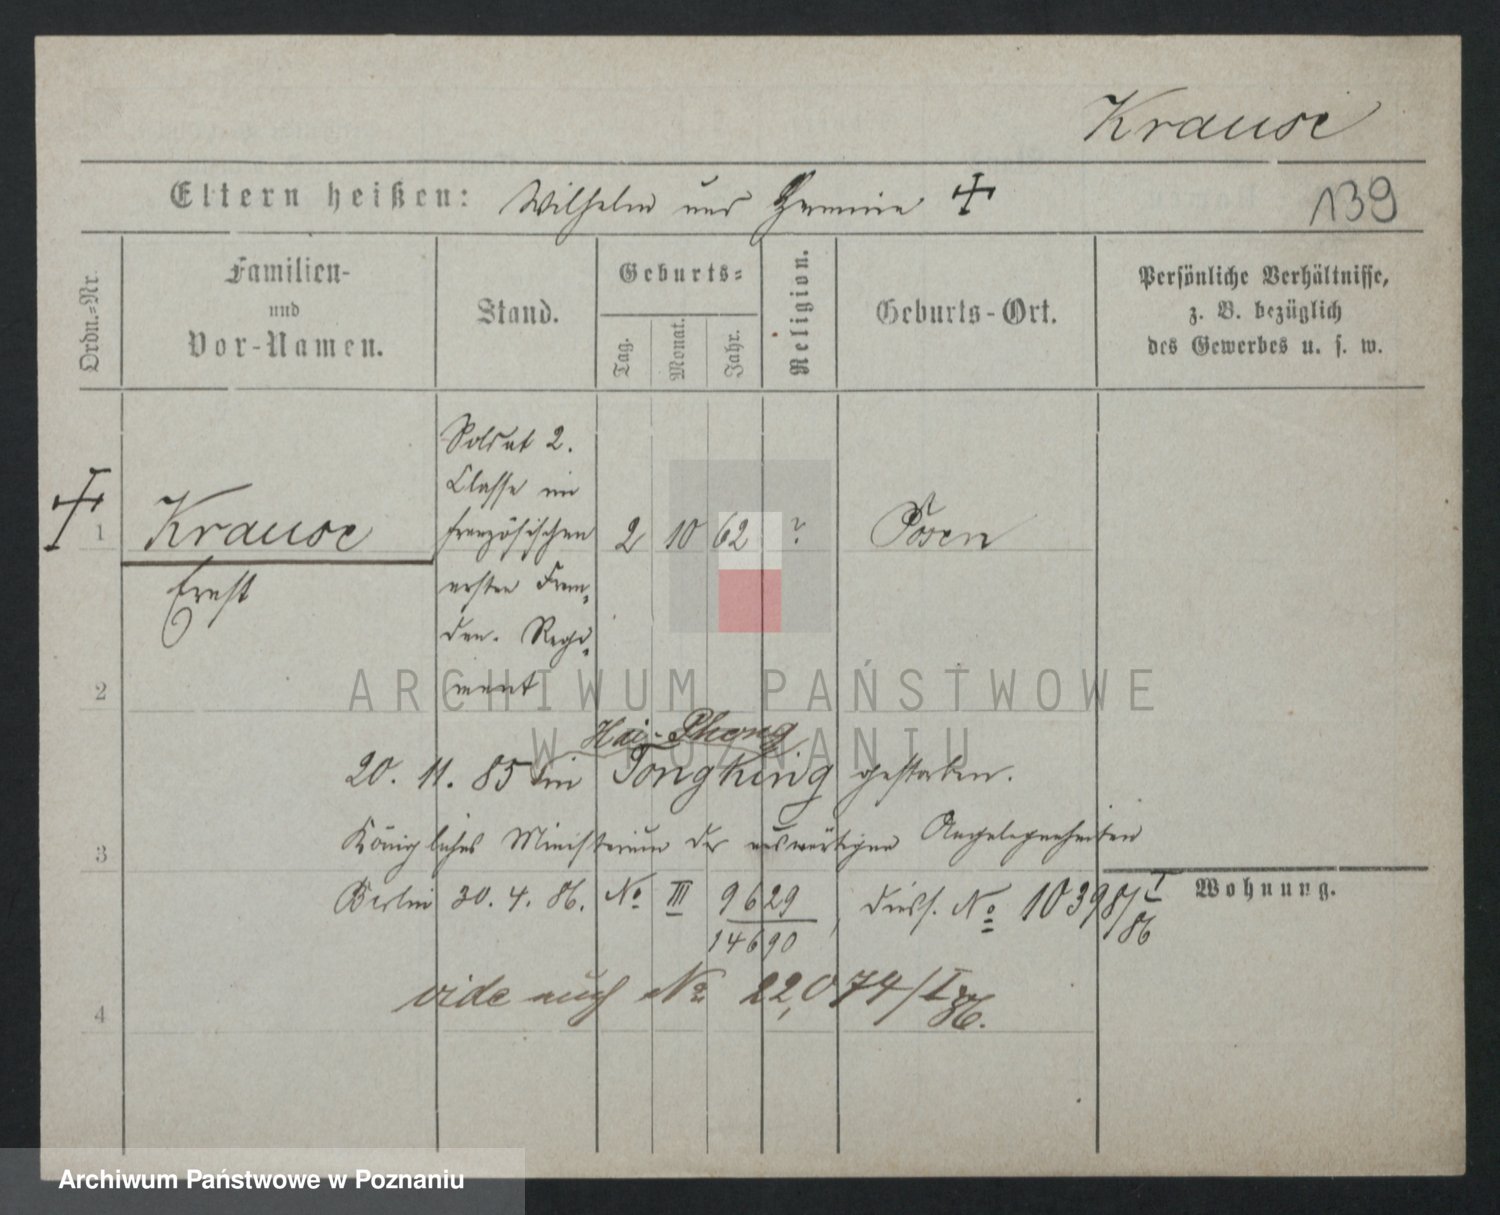 Krause
139
Eltern heißen: Wilhelm und Hermine
Ordn.=Nr.
Familien-
und
Vor-Namen.
Stand.
Geburts=
Tag.
Monat.
Jahr.
Religion.
Geburts-Ort.
Persönliche Verhältnisse,
z. B. bezüglich
des Gewerbes u. s. w.
1
Krause
Ernst
Soldat 2.
Classe im
französischen
ersten Frem=
den. Regi=
ment
2 10 62 ? Posen
2
Hai-Phong
20. 11. 85 in Tongking gestorben.
3
Königliches Ministerium der auswärtigen Angelegenheiten
Berlin 30. 4. 86. No III 9629
14690
, diess. No 10398/I
86
Wohnung.
4
vide auch No 22,074/I 86.
ARCHIWUM PAŃSTWOWE
W POZNANIU
Archiwum Państwowe w Poznaniu